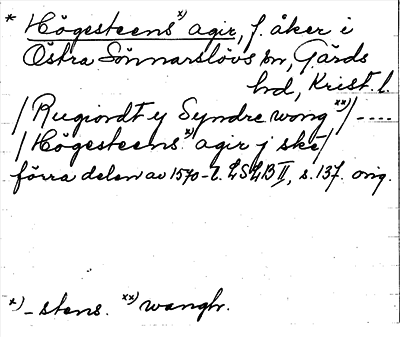 * Högesteens x) agir, f. åker i
Östra Sönnarslövs sn, Gärds
hd, Krist. l.
/ Rugiordt y Syndre wong xx) / ----
/ Högesteens x) agir j ske /
förra delen av 1570-t. LSLB II, s. 137. orig.
x) - stens. xx) wangh.